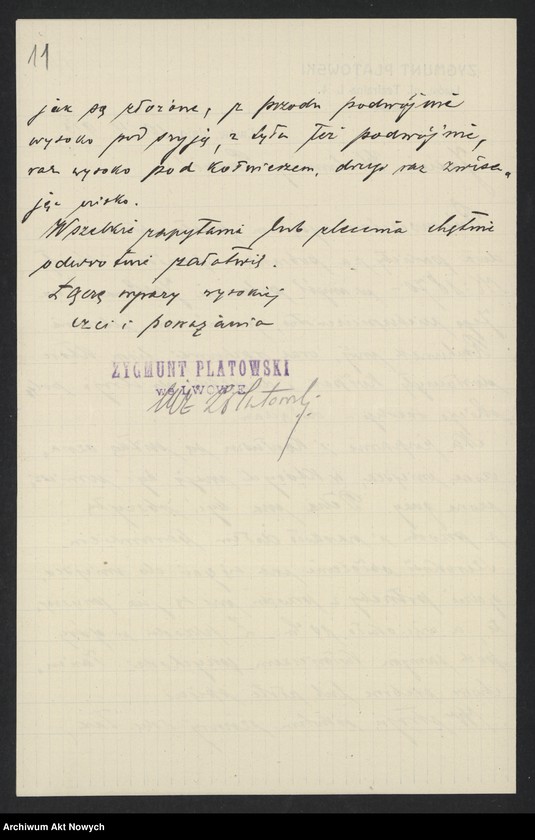 11
jak są złożone, z przodu podwójnie
wysoko pod szyję, z tyłu też podwójnie,
raz wysoko pod kołnierzem, drugi raz zwisa-
jąc nisko.
Wszelkie zapytania lub zlecenia chętnie
odwrotnie załatwię.
Łączę wyrazy wysokiej
czci i poważania
ZYGMUNT PLATOWSKI
we LWOWIE
Archiwum Akt Nowych